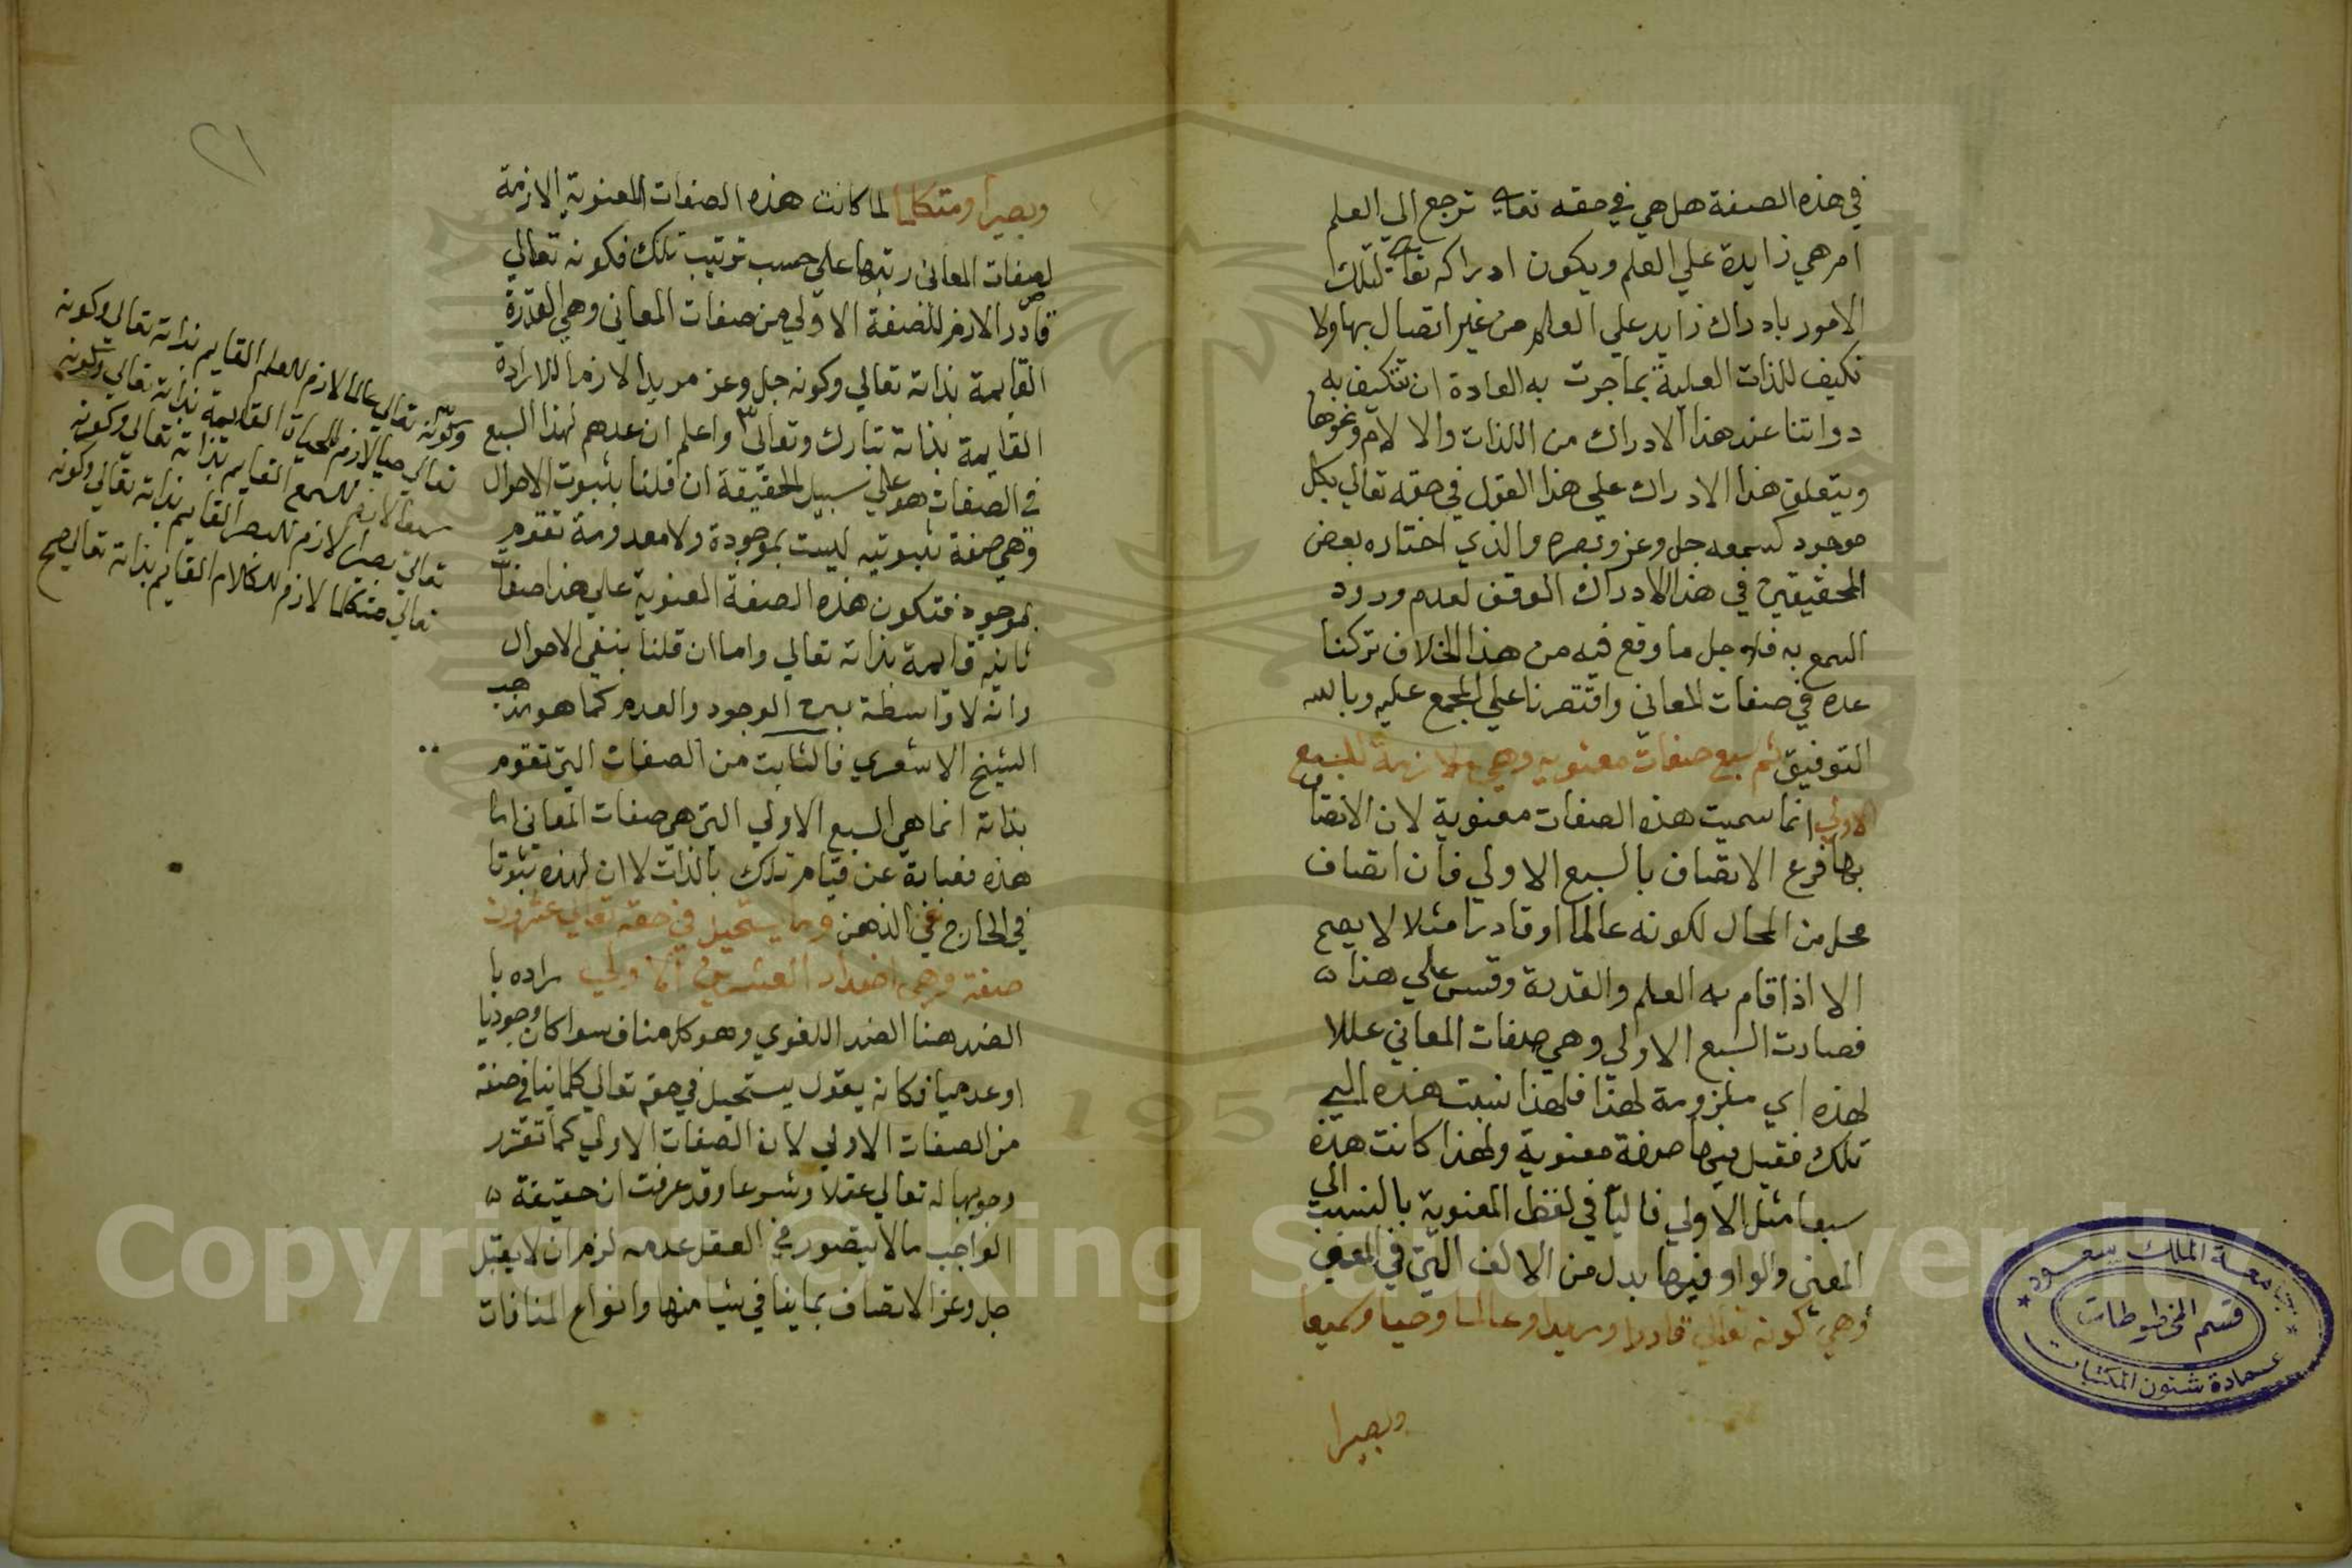 في هذه الصفة هل هي في حقه تعالى ترجع الي العلم
ام هي زايدة علي العلم ويكون ادراكه تعالى لتلك
الامور بادراك زايد علي العلم من غير اتصال بها ولا
تكيف للذات العلية بما جرت به العادة ان تتكيف به
دواتنا عند هذا الادراك من اللذات والالام ونحوها
ويتعلق هذا الادراك علي هذا القول في حقه تعالي بكل
موجود كسمعه جل وعز وبصره والذي اختاره بعض
المحققين في هذا الادراك الوقف لعدم ورود
السمع به فلاجل ما وقع فيه من هذا الخلاف تركنا
عده في صفات المعاني واقتصرنا علي المجمع عليه وبالله
التوفيق ثم سبع صفات معنوية وهي ملازمة للسبع
الاولي انما سميت هذه الصفات معنوية لان الاتصاف
بها فرع الاتصاف بالسبع الاولي فان اتصاف
محل من المحال لكونه عالما او قادرا مثلا لا يصح
الا اذا قام به العلم والقدرة وقس علي هذا ه
فصارت السبع الاولي وهي صفات المعاني عللا
لهذه اي ملزومة لهذا فلهذا نسبت هذه الي
تلك فقيل فيها صفة معنوية ولهذا كانت هذه
سبعا مثل الاولي فاليا في لفظ المعنوية بالنسبة الي
المعني والواو فيها بدل من الالف التي في المعني
وهي كونه تعالي قادرا ومريدا وعالما وحيا وسميعا
وبصيرا
جامعة الملك سعود
قسم المخطوطات
عمادة شئون المكتبات
٢١
وبصيرا ومتكلما لما كانت هذه الصفات المعنوية لازمة
لصفات المعاني رتبها علي حسب ترتيب تلك فكونه تعالي
قادر الازم للصفة الاولي من صفات المعاني وهي القدرة
القايمة بذاته تعالي وكونه جل وعز مريدا لازما للارادة
القايمة بذاته تبارك وتعالى واعلم ان عدهم لهذا السبع
في الصفات هو علي سبيل الحقيقة ان قلنا بثبوت الاحوال
وهي صفة ثبوتيه ليست بموجودة ولا معدومة تقوم
بموجود فتكون هذه الصفة المعنوية علي هذا صفات
ثابته قايمة بذاته تعالي واما ان قلنا بنفي الاحوال
وانه لا واسطة بين الوجود والعدم كما هو مذهب
الشيخ الاشعري فالثابت من الصفات التي تقوم
بذاته انما هي السبع الاولي التي هي صفات المعاني اما
هذه فعبارة عن قيام تلك بالذات لا ان لهذه ثبوتا
في الخارج عن الذهن ومما يستحيل في حقه تعالي عشرون
صفة وهي اضداد العشرين الاولي مراده با
الضد هنا الضد اللغوي وهو كل مناف سوا كان وجوديا
او عدميا فكانه يقول يستحيل في حقه تعالي كلما ينافي صفة
من الصفات الاولي لان الصفات الاولي كما تقرر
وجوبها له تعالي عقلا وشرعا وقد عرفت ان حقيقة ه
الواجب ما لا يتصور في العقل عدمه لزم ان لا يقبل
جل وعز الاتصاف بما ينافي شيا منها وانواع المنافات
وكونه تعالي عالما لازم للعلم القايم بذاته تعالي وكونه
تعالي حيا لازم للحياة القايمة بذاته تعالي وكونه
سميعا لازم للسمع القايم بذاته تعالي وكونه
تعالي بصيرا لازم للبصر القايم بذاته تعالي وكونه
تعالي متكلما لازم للكلام القايم بذاته تعالي صح
Copyright © King Saud University
1957